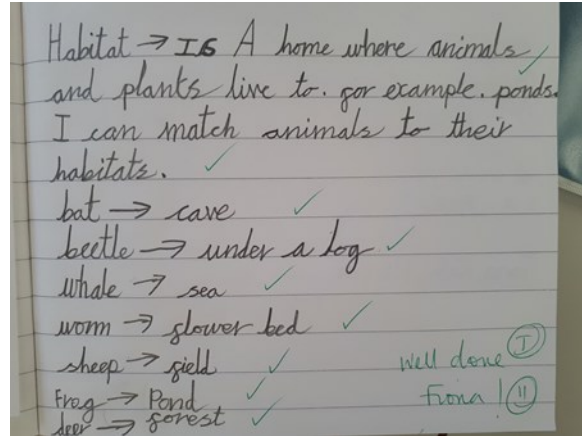 Habitat → IS A home where animals
and plants live to. for example. ponds.
I can match animals to their
habitats.
bat → cave
beetle → under a log
whale → sea
worm → flower bed
sheep → field
Frog → Pond
deer → forest
Well done I
Fiona !